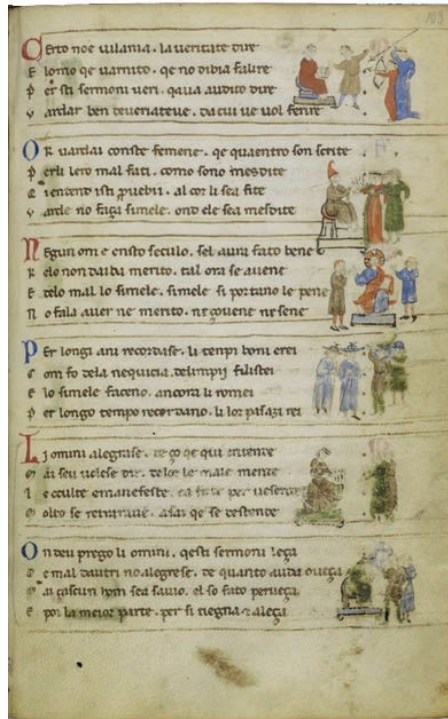 103
Certo noe vilania . la veritate dire
E lomo qe varnito . qe no dibia falire
Per sti sermoni veri . qaua audito dire
vardar ben deveriateve . da cui ve vol ferire
Or vardai con ste femene . qe quentro son scrite
Perli lero mal fati . como sono mesdite
intendo isti pverbii . al cor li sea fite
varde no faça simele . ond ele sea mesdite
Negun om e en sto seculo . sel aura fato bene
elo non daiba merito . tal ora se avene
E telo mal lo simele . simele si portano le pene
No fala aver ne merito . ne çovene ne sene
Per longi ani recordase . li tenpi boni erei
Com fo dela nequicia . deli mpii filistei
E lo simele faceno . ancora li romei
Per longo tempo recordano . li lor pasazi rei
Li omini alegrase . de ço qe qui intente
ai seu volese dir . de lor le male mente
e oculte e manefeste . per
molto se
On deu prego li omini . qesti sermoni leça
e mal dautri no alegrese . de quanto auda oveça
ai çascun hom sea savio . el so fato perveça
E por la meior parte . per si tiegna & aleça